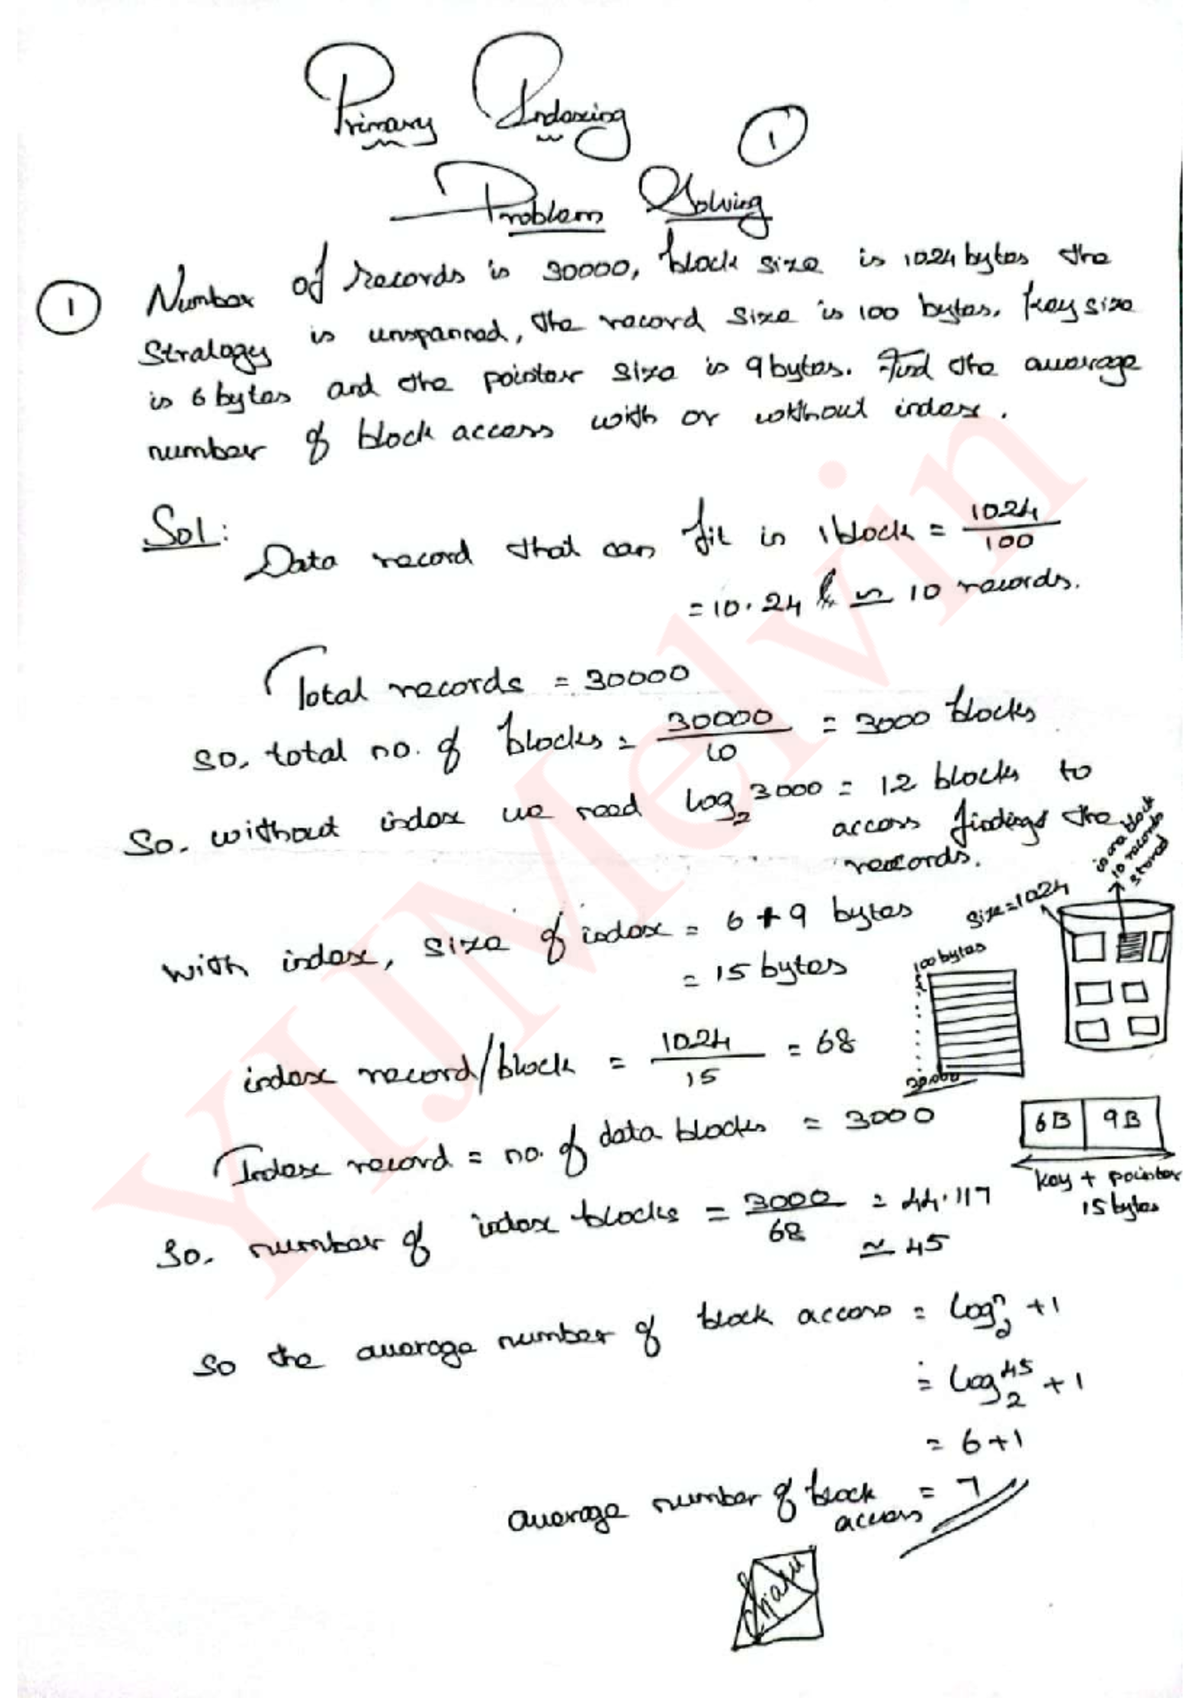 Primary Indexing
1
Problem Solving
1 Number of records is 30000, block size is 1024 bytes the
Stralogy is unspanned, the record size is 100 bytes, key size
is 6 bytes and the pointer size is 9 bytes. Find the average
number of block access with or without index.
Sol:
Data record that can fit in 1 block = 1024/100
= 10.24 ≃ 10 records.
Total records = 30000
So, total no. of blocks = 30000/10 = 3000 blocks
So, without index we need log₂ 3000 = 12 blocks to
access findings the
records.
in one block
10 records
stored
Size=1024
with index, size of index = 6 + 9 bytes
= 15 bytes
100 bytes
30,000
index record/block = 1024/15 = 68
Index record = no. of data blocks = 3000
6B 9B
key + pointer
15 bytes
So, number of index blocks = 3000/68 = 44.117
≃ 45
So the average number of block access = log₂ⁿ + 1
= log₂⁴⁵ + 1
= 6+1
average number of block access = 7
YIJMelvin